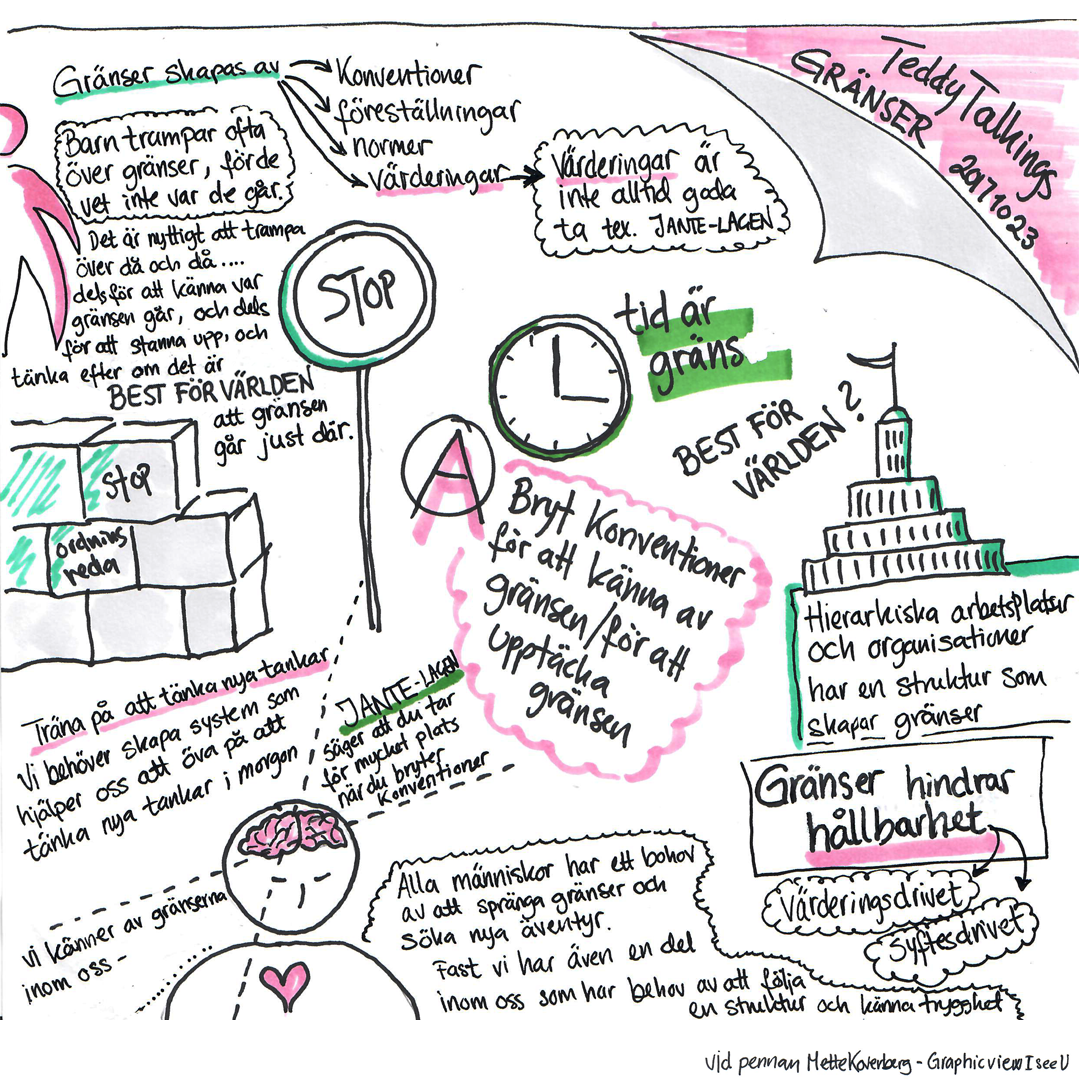 TeddyTalkings
GRÄNSER
20171023
Gränser skapas av
Konventioner
föreställningar
normer
värderingar
Värderingar är
inte alltid goda
ta tex. JANTE-LAGEN
Barn trampar ofta
över gränser, för de
vet inte var de går.
Det är nyttigt att trampa
över då och då....
dels för att känna var
gränsen går, och dels
för att stanna upp, och
tänka efter om det är
BEST FÖR VÄRLDEN
att gränsen
går just där.
STOP
tid är
gräns
BEST FÖR
VÄRLDEN?
STOP
ordning
reda
A
Bryt Konventioner
för att känna av
gränsen/för att
upptäcka
gränsen
Hierarkiska arbetsplatser
och organisationer
har en struktur som
skapar gränser
Träna på att tänka nya tankar
Vi behöver skapa system som
hjälper oss att öva på att
tänka nya tankar i morgon
JANTE-LAGEN
säger att du tar
för mycket plats
när du bryter
Konventioner
Gränser hindrar
hållbarhet
Värderingsdrivet
Syftesdrivet
vi känner av gränserna
inom oss-
Alla människor har ett behov
av att spränga gränser och
söka nya äventyr.
Fast vi har även en del
inom oss som har behov av att följa
en struktur och känna trygghet
vid pennan Mette Koverberg - GraphicviewIseeU